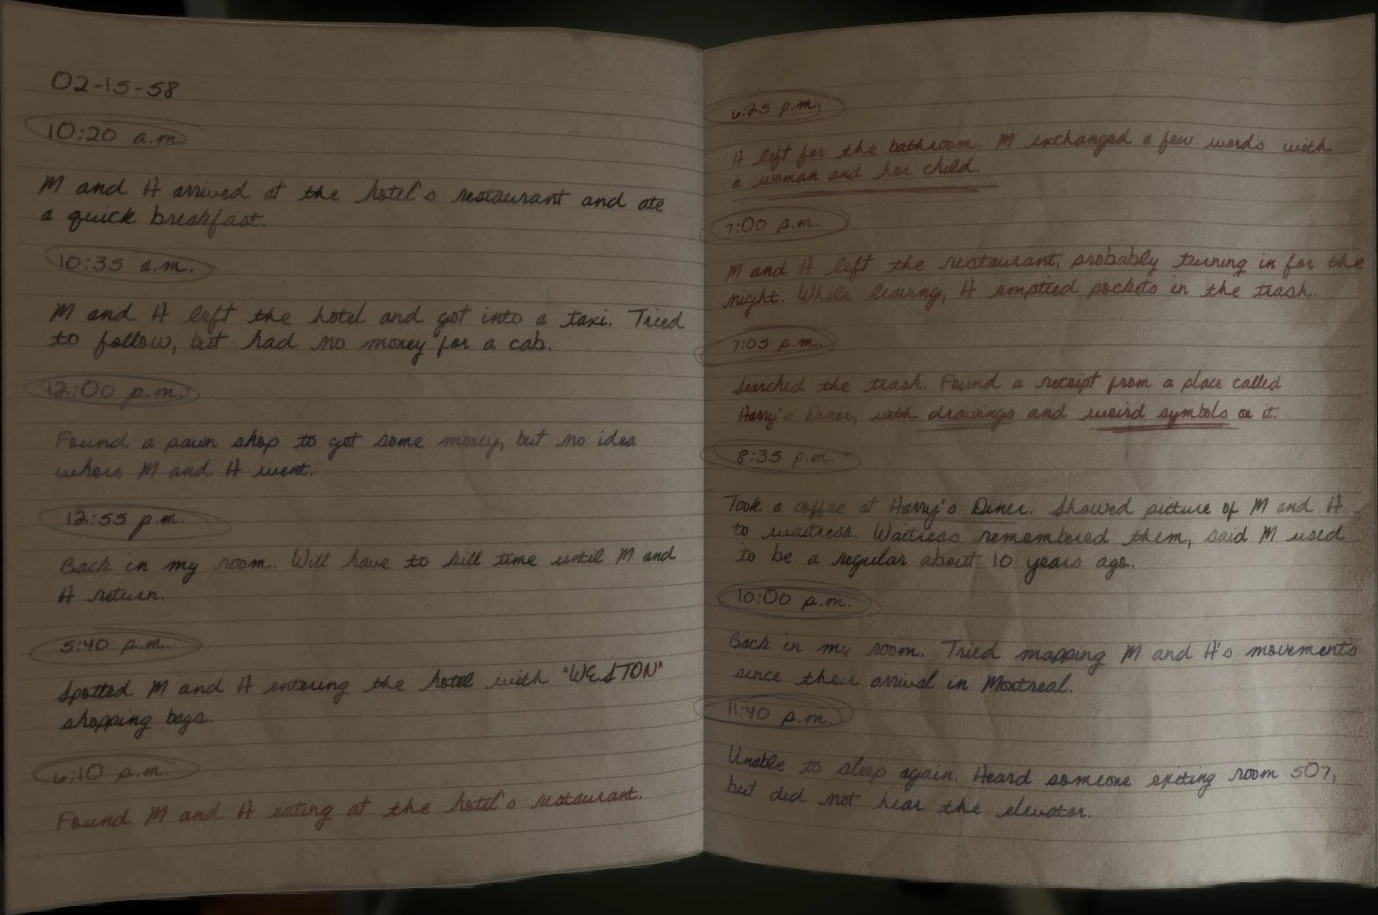 02-15-58
10:20 a.m.
M and H arrived at the hotel's restaurant and ate
a quick breakfast.
10:35 a.m.
M and H left the hotel and got into a taxi. Tried
to follow, but had no money for a cab.
12:00 p.m.
Found a pawn shop to get some money, but no idea
where M and H went.
12:55 p.m.
Back in my room. Will have to kill time until M and
H return.
5:40 p.m.
Spotted M and H entering the hotel with "WESTON"
shopping bags.
6:10 p.m.
Found M and H eating at the hotel's restaurant.
6:25 p.m.
H left for the bathroom. M exchanged a few words with
a woman and her child.
7:00 p.m.
M and H left the restaurant, probably turning in for the
night. While leaving, H emptied pockets in the trash.
7:05 p.m.
Searched the trash. Found a receipt from a place called
Harry's Diner, with drawings and weird symbols on it.
8:35 p.m.
Took a coffee at Harry's Diner. Showed picture of M and H
to waitress. Waitress remembered them, said M used
to be a regular about 10 years ago.
10:00 p.m.
Back in my room. Tried mapping M and H's movements
since their arrival in Montreal.
11:40 p.m.
Unable to sleep again. Heard someone exiting room 507,
but did not hear the elevator.